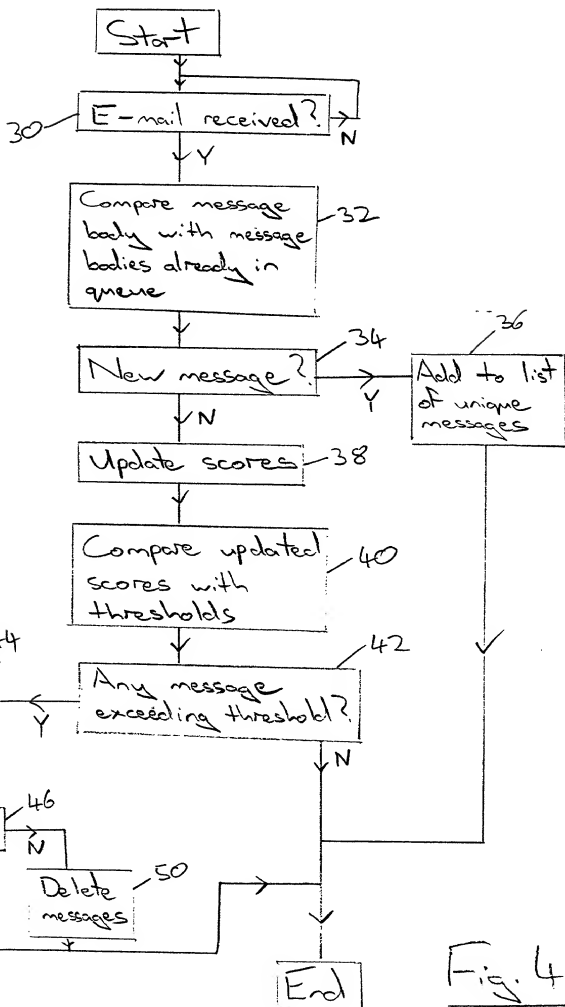 Start
E-mail received?
30
N
Y
Compare message
body with message
bodies already in
queue
32
New message?
34
Y
36
Add to list
of unique
messages
N
Update scores
38
Compare updated
scores with
thresholds
40
Any message
exceeding threshold?
42
Y
N
46
N
Delete
messages
50
End
Fig. 4